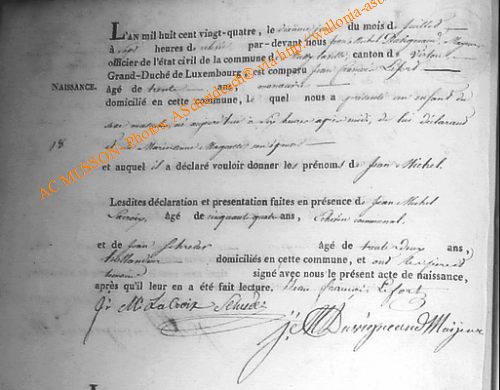 L'AN mil huit cent vingt-quatre, le jour du mois de Juillet
à six heures de par-devant nous Jean Michel Duvigneaud Mayeur
officier de l'état civil de la commune de canton de Virton
Grand-Duché de Luxembourg est comparu Jean François Lefort
NAISSANCE.
âgé de trente ans, manœuvre
domicilié en cette commune, le quel nous a présenté un enfant de
sexe masculin, né aujourd'hui à six heures après midi, de lui déclarant
18
et de Marie Anne
et auquel il a déclaré vouloir donner les prénoms de Jean Michel.
Lesdites déclaration et presentation faites en présence de Jean Michel
Lacroix, âgé de cinquante quatre ans, Echevin communal.
et de Jean Schreder âgé de trente deux ans,
domiciliés en cette commune, et ont
signé avec nous le présent acte de naissance,
après qu'il leur en a été fait lecture. Jean François Lefort
J. M. LaCroix
j. M Duvigneaud Maijeur
AC MUSSON- Photos: ASchmidt/ via http://wallonia-as